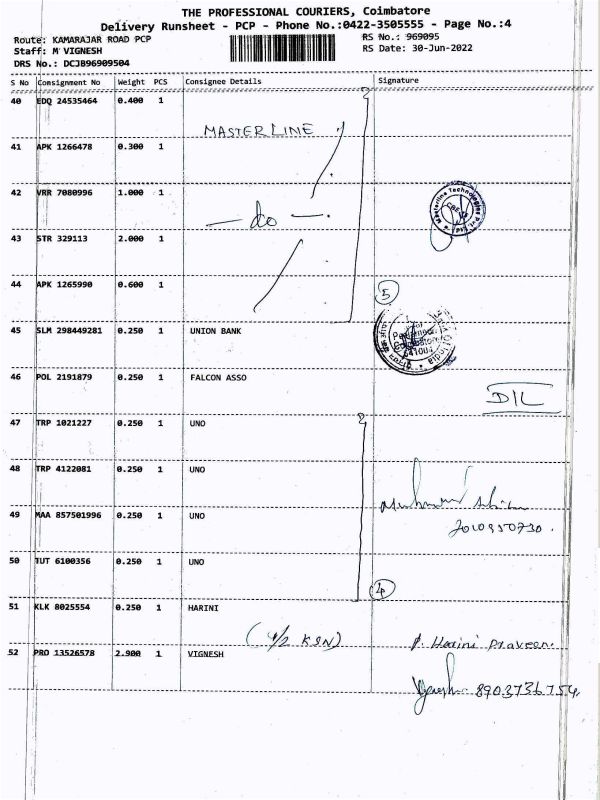 THE PROFESSIONAL COURIERS, Coimbatore
Delivery Runsheet - PCP - Phone No.:0422-3505555 - Page No.:4
Route: KAMARAJAR ROAD PCP
RS No.: 969095
Staff: M VIGNESH
RS Date: 30-Jun-2022
DRS No.: DCJB96909504
S No Consignment No Weight PCS Consignee Details Signature
40 EDQ 24535464 0.400 1
MASTERLINE
41 APK 1266478 0.300 1
42 VRR 7080996 1.000 1
- do -
43 STR 329113 2.000 1
44 APK 1265990 0.600 1
5
45 SLM 298449281 0.250 1 UNION BANK
46 POL 2191879 0.250 1 FALCON ASSO
D/L
47 TRP 1021227 0.250 1 UNO
48 TRP 4122081 0.250 1 UNO
49 MAA 857501996 0.250 1 UNO
50 TUT 6100356 0.250 1 UNO
4
51 KLK 8025554 0.250 1 HARINI
P. Harini Praveen.
52 PRO 13526578 2.900 1 VIGNESH
8903736754